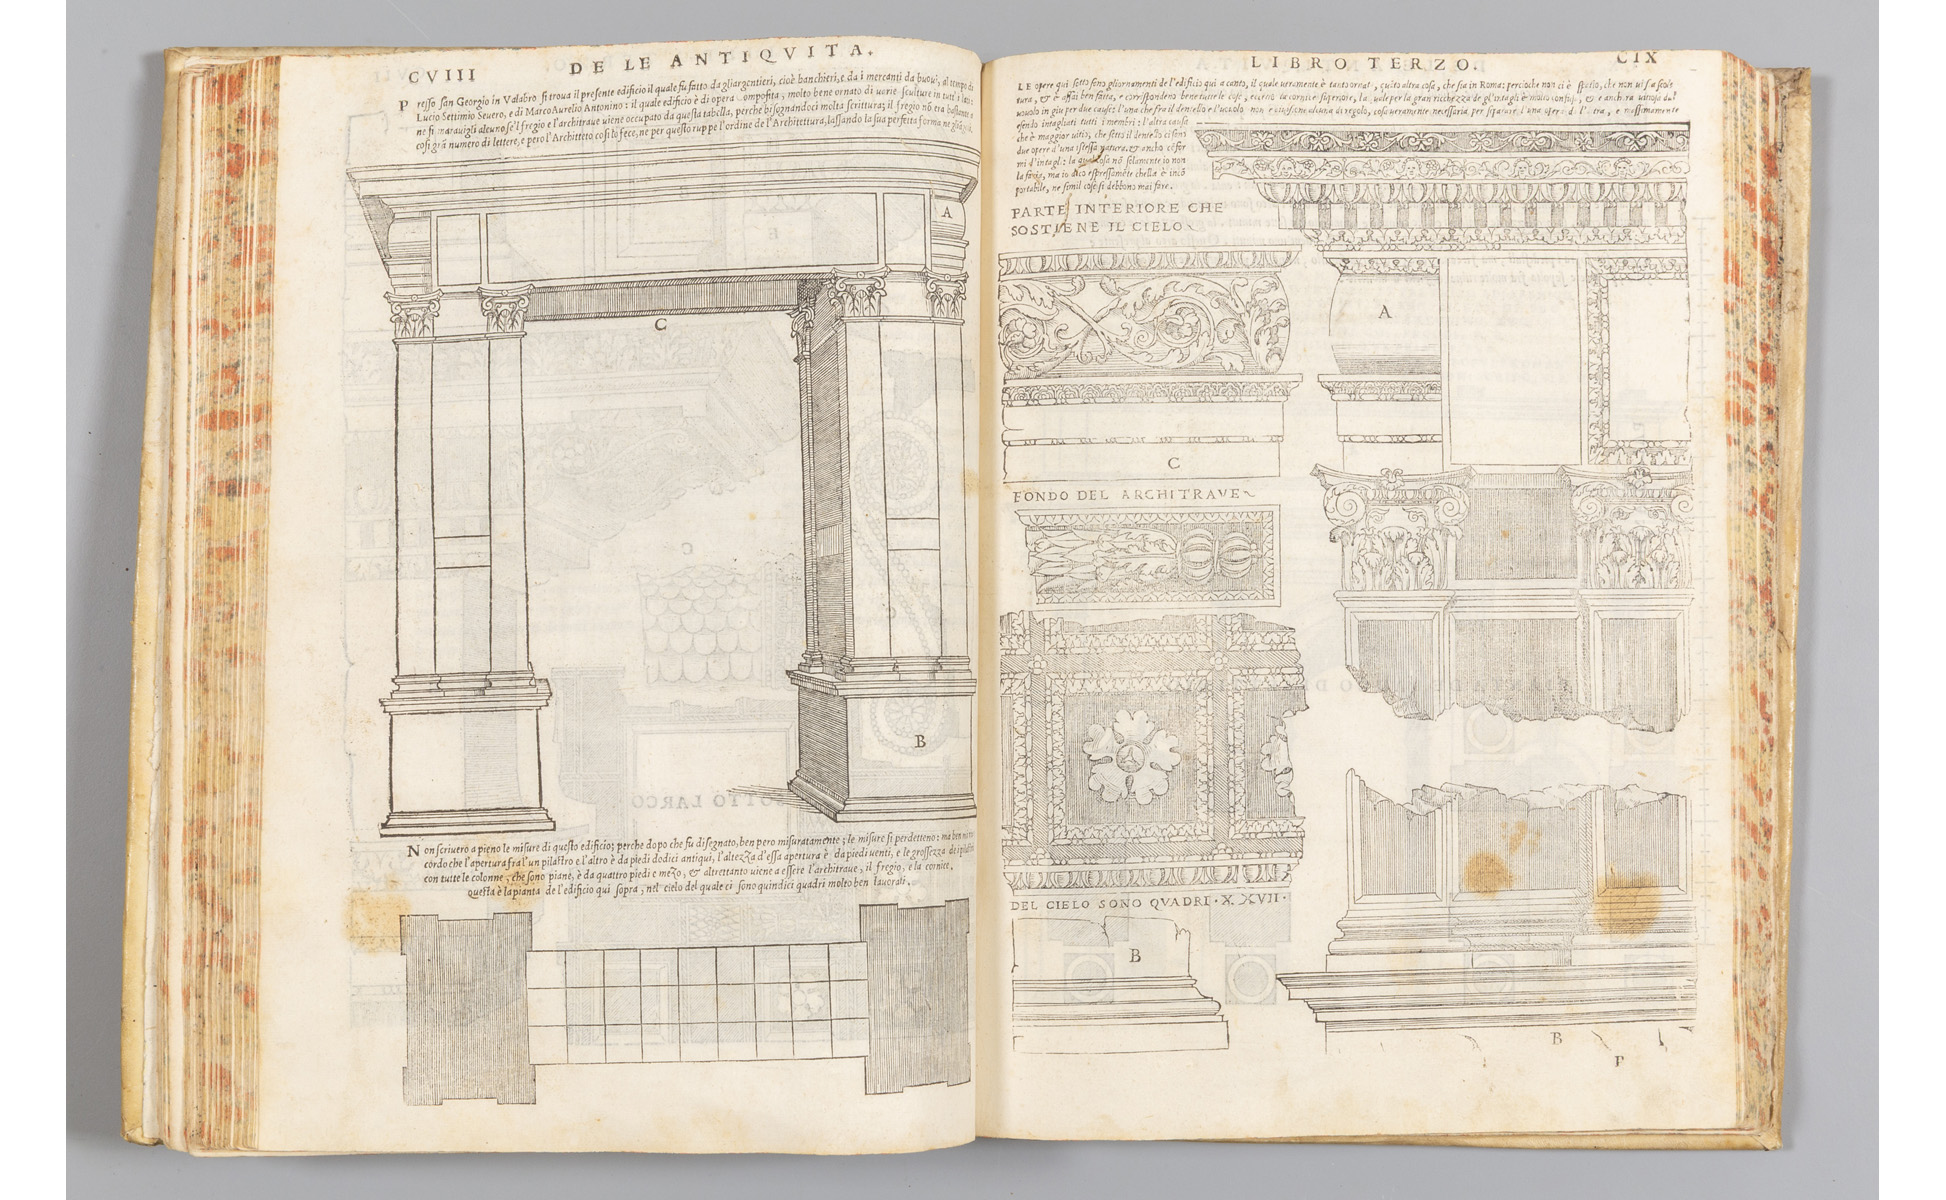 CVIII DE LE ANTIQVITA.
Presso san Georgio in Valabro si troua il presente edificio il quale fu fatto da gli argentieri, cioè banchieri, e da i mercanti da buoui, al tempo di
Lucio Settimio Seuero, e di Marco Aurelio Antonino: il quale edificio è di opera composita, molto bene ornato di uarie sculture in tutti i lati:
ne si marauigli alcuno se'l fregio e l'architraue uiene occupato da questa tabella, perche bisognandoci molta scrittura; il fregio nõ era bastante a
cosi grã numero di lettere, e pero l'Architetto cosi lo fece, ne per questo ruppe l'ordine de l'Architettura, lassando la sua perfetta forma ne gli
A
C
B
Non scriuero a pieno le misure di questo edificio; perche dopo che fu disegnato, ben pero misuratamente; le misure si perdettero: ma ben mi
cordo che l'apertura fra l'un pilastro e l'altro è da piedi dodici antiqui, l'altezza d'essa apertura è da piedi uenti, e le grossezza de i pilastri
con tutte le colonne, che sono piane, è da quattro piedi e mezo, & altrettanto uiene a essere l'architraue, il fregio, e la cornice,
questa è la pianta de l'edificio qui sopra, nel cielo del quale ci sono quindici quadri molto ben lauorati.
LIBRO TERZO. CIX
LE opere qui sotto sono gli ornamenti de l'edificio qui a canto, il quale ueramente è tanto ornato, quãto altra cosa, che sia in Roma: percioche non ci è spatio, che non ui sia scol
tura, & è assai ben fatta, e corrispondono bene tutte le cose, eccetto la cornice superiore, la quale per la gran ricchezza de gl'intagli è molto confusa, & è anchora uitiosa dal
uouolo in giu per due cause: l'una che fra il dentello e l'uouolo non ci essendo alcuna di regolo, cosa ueramente necessaria per separare l'una opera da l'altra, e massimamente
essendo intagliati tutti i membri: l'altra causa
che è maggior uitio, che sotto il dentello ci sono
due opere d'una istessa natura, & ancho cõfor
mi d'intagli: la qual cosa nõ solamente io non
la faria, ma io dico espressamẽte chella è incõ
portabile, ne simil cose si debbono mai fare.
PARTE INTERIORE CHE
SOSTIENE IL CIELO
A
C
FONDO DEL ARCHITRAVE
DEL CIELO SONO QVADRI · X XVII ·
B
B
P